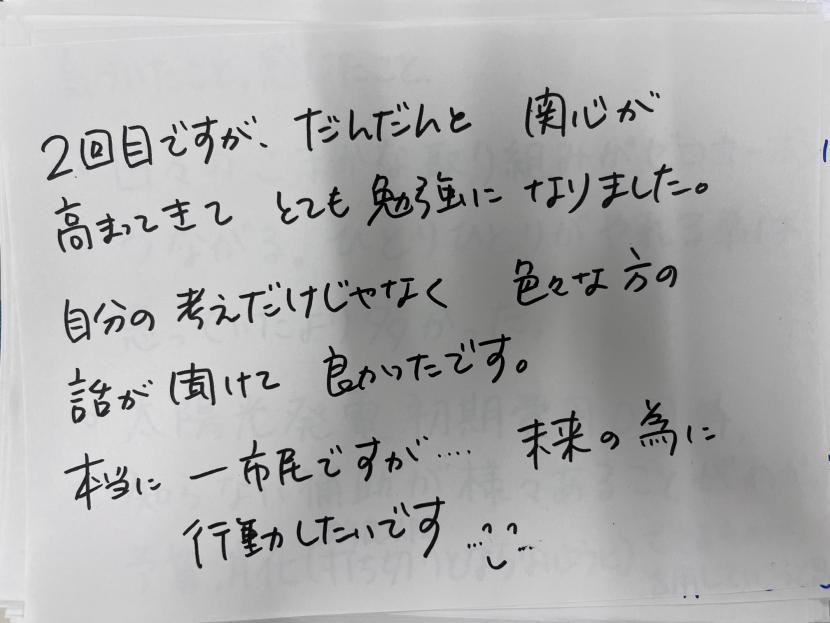 2回目ですが、だんだんと 関心が
高まってきて とても 勉強に なりました。
自分の 考えだけじゃなく 色々な 方の
話が 聞けて 良かったです。
本当に 一市民ですが‥‥ 未来の 為に
行動したいです